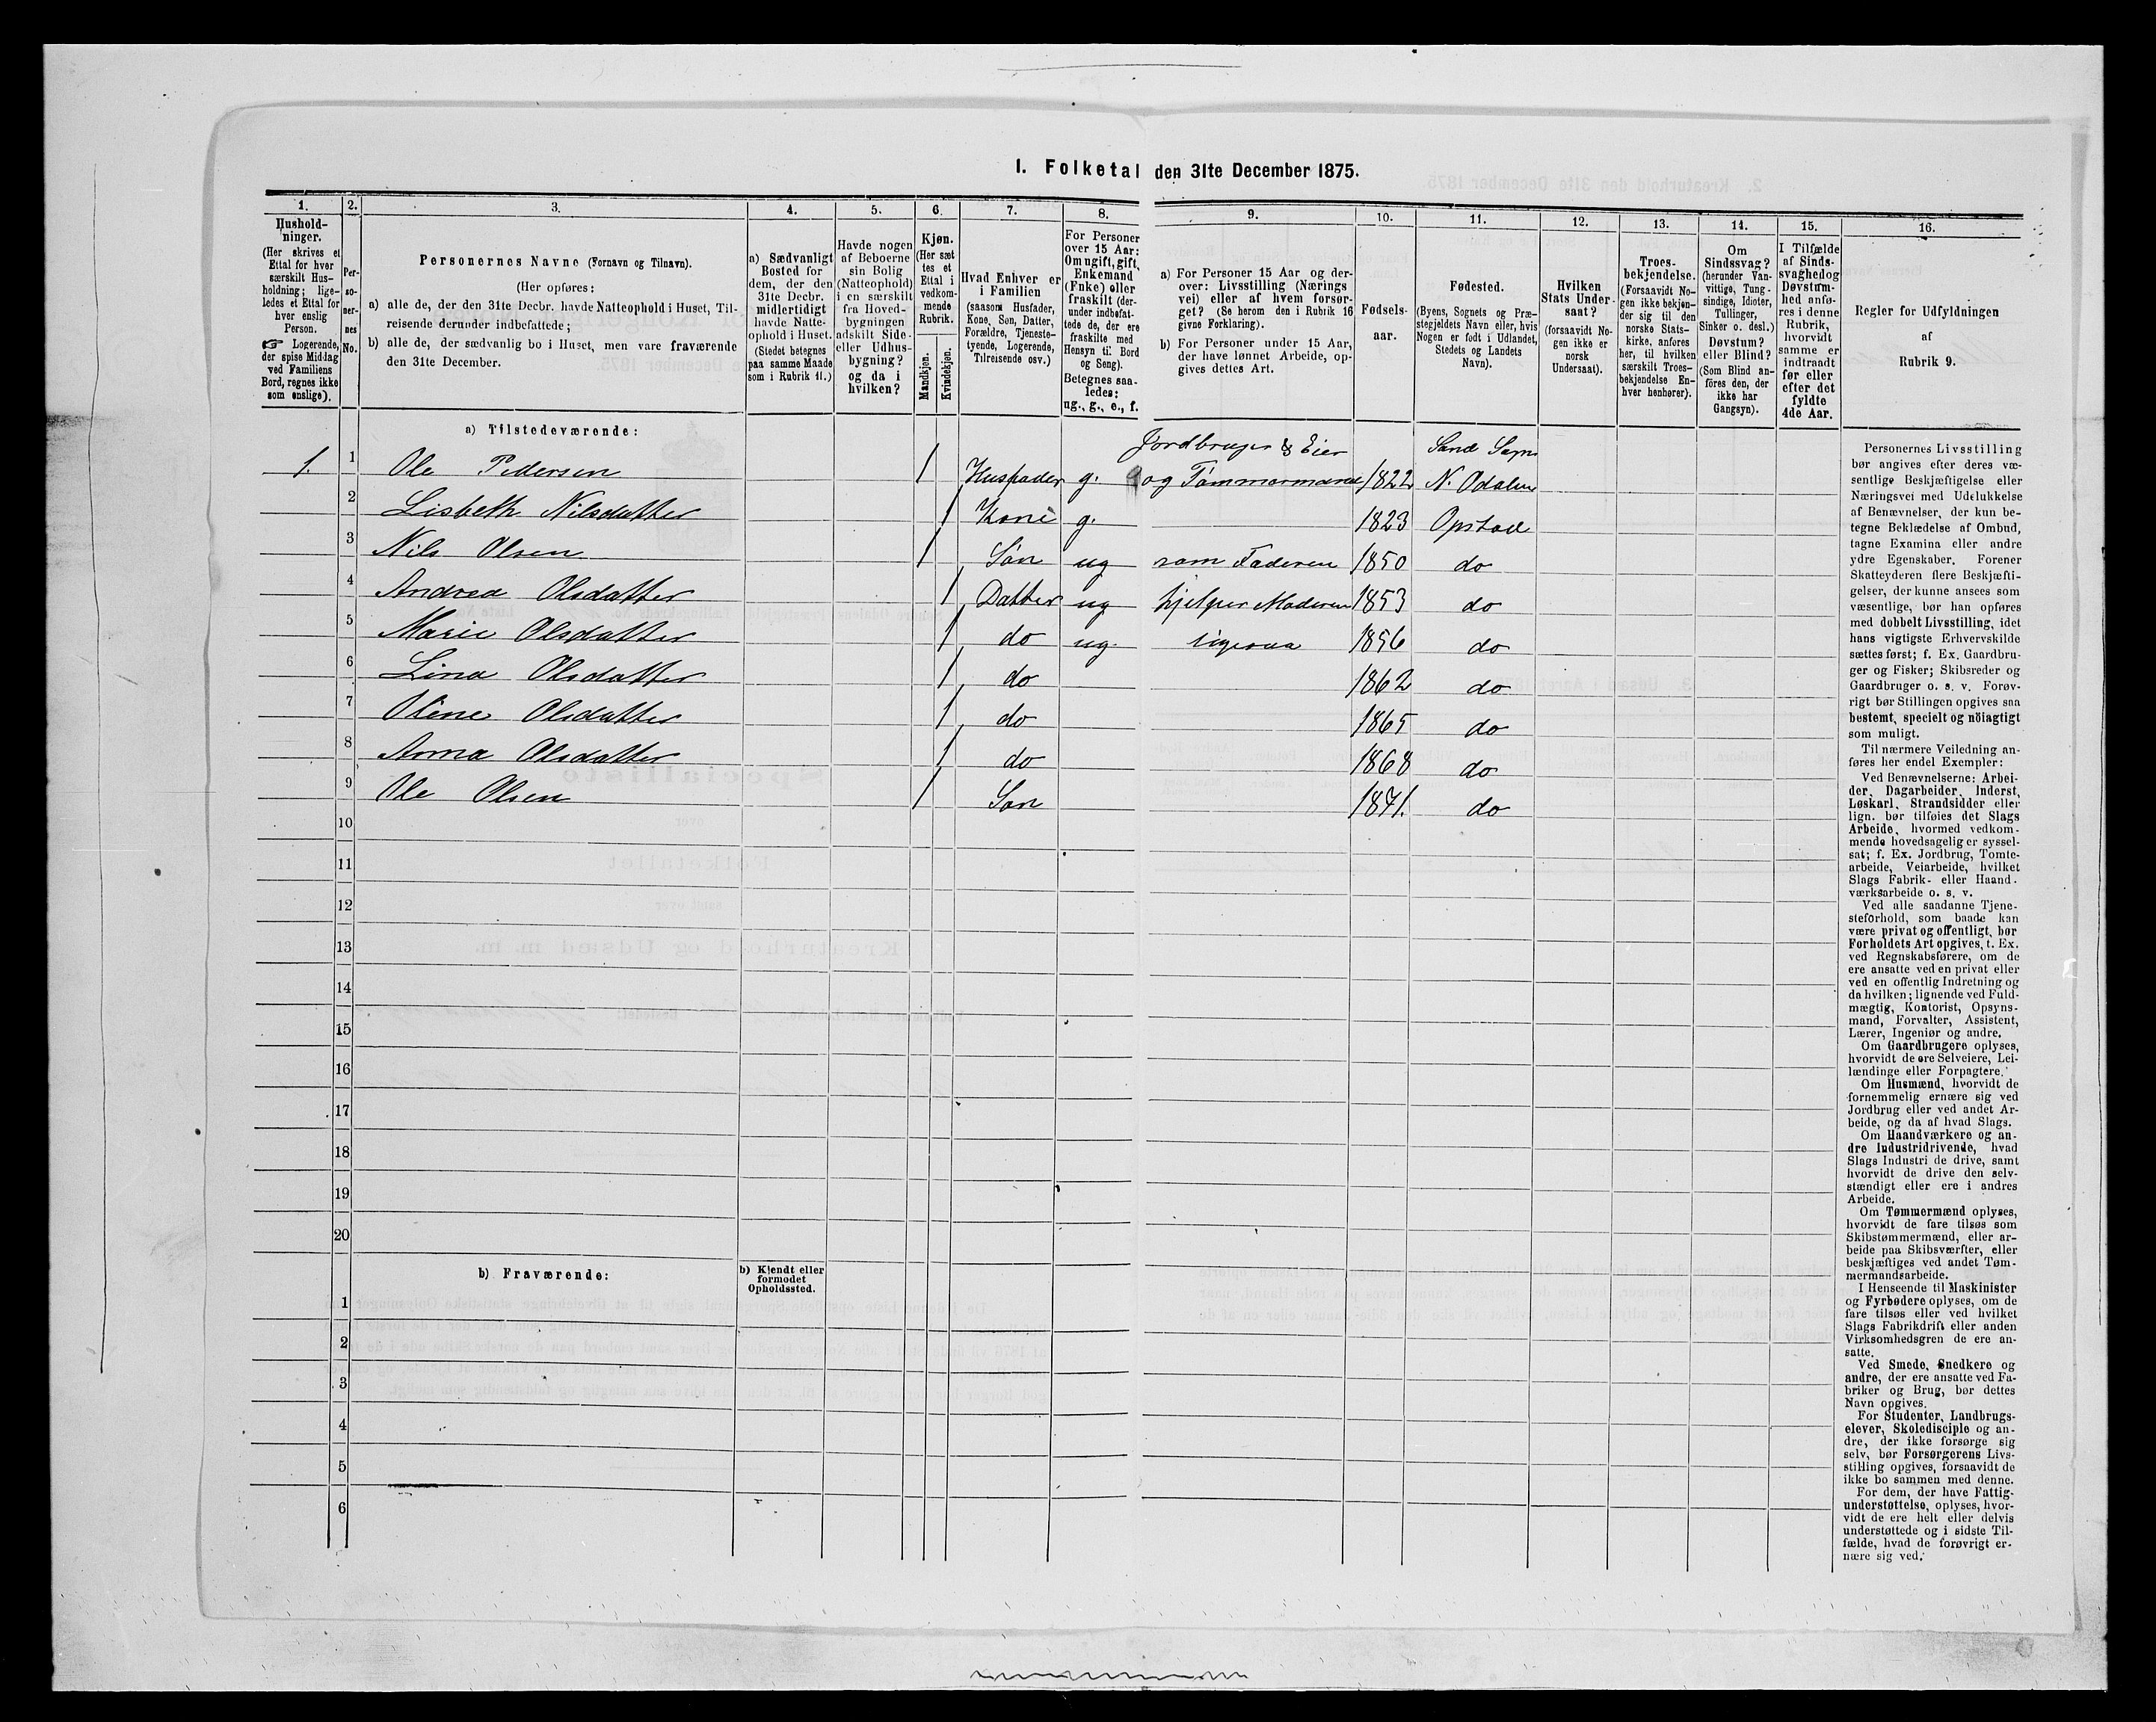 I. Folketal den 31te December 1875.
1. 2. 3. 4. 5. 6. 7. 8. 9. 10. 11. 12. 13. 14. 15. 16.
Hushold-
ninger.
(Her skrives et
Ettal for hver
særskilt Hus-
holdning; lige-
ledes et Ettal for
hver enslig
Person.
☞ Logerende,
der spise Middag
ved Familiens
Bord, regnes ikke
som enslige).
Per-
so-
ner-
nes
No.
Personernes Navne (Fornavn og Tilnavn).
(Her opføres:
a) alle de, der den 31te Decbr. havde Natteophold i Huset, Til-
reisende derunder indbefattede;
b) alle de, der sædvanlig bo i Huset, men vare fraværende
den 31te December.
a) Sædvanligt
Bosted for
dem, der den
31te Decbr.
midlertidigt
havde Natte-
ophold i Huset.
(Stedet betegnes
paa samme Maade
som i Rubrik 11.)
Havde nogen
af Beboerne
sin Bolig
(Natteophold)
i en særskilt
fra Hoved-
bygningen
adskilt Side-
eller Udhus-
bygning?
og da i
hvilken?
Kjøn.
(Her sæt-
tes et
Ettal i
vedkom-
mende
Rubrik.
Mandkjøn.
Kvindekjøn.
Hvad Enhver er
i Familien
(saasom Husfader,
Kone, Søn, Datter,
Forældre, Tjeneste-
tyende, Logerende,
Tilreisende osv.)
For Personer
over 15 Aar:
Om ugift, gift,
Enkemand
(Enke) eller
fraskilt (der-
under indbefat-
tede de, der ere
fraskilte med
Hensyn til Bord
og Seng).
Betegnes saa-
ledes:
ug., g., e., f.
a) For Personer 15 Aar og der-
over: Livsstilling (Nærings
vei) eller af hvem forsør-
get? (Se herom den i Rubrik 16
givne Forklaring).
b) For Personer under 15 Aar,
der have lønnet Arbeide, op-
gives dettes Art.
Fødsels-
aar.
Fødested.
(Byens, Sognets og Præ-
stegjeldets Navn eller, hvis
Nogen er født i Udlandet,
Stedets og Landets
Navn).
Hvilken
Stats Under-
saat?
(forsaavidt No-
gen ikke er
norsk
Undersaat).
Troes-
bekjendelse.
(Forsaavidt No-
gen ikke bekjen-
der sig til den
norske Stats-
kirke, anføres
her, til hvilken
særskilt Troes-
bekjendelse En-
hver henhører).
Om
Sindssvag?
(herunder Van-
vittige, Tung-
sindige, Idioter,
Tullinger,
Sinker o. desl.)
Døvstum?
eller Blind?
(Som Blind an-
föres den, der
ikke har
Gangsyn).
I Tilfælde
af Sinds-
svaghed og
Døvstum-
hed anfø-
res i denne
Rubrik,
hvorvidt
samme er
indtraadt
før eller
efter det
fyldte
4de Aar.
Regler for Udfyldningen
af
Rubrik 9.
a) Tilstedeværende:
Jordbruger & Eier Sand Sogn
1. 1 Ole Pedersen 1 Husfader g. og Tømmermand 1822 N. Odalen
2 Lisbeth Nilsdatter 1 Kone g. 1823 Opstad
3 Nils Olsen 1 Søn ug som Faderen 1850 do
4 Andrea Olsdatter 1 Datter ug hjelper Moderen 1853 do
5 Marie Olsdatter 1 do ug. ligesaa 1856 do
6 Lina Olsdatter 1 do 1862 do
7 Oline Olsdatter 1 do 1865 do
8 Anna Olsdatter 1 do 1868 do
9 Ole Olsen 1 Søn 1871. do
10
11
12
13
14
15
16
17
18
19
20
b) Fraværende:
b) Kjendt eller
formodet
Opholdssted.
1
2
3
4
5
6
Personernes Livsstilling
bør angives efter deres væ-
sentlige Beskjæftigelse eller
Næringsvei med Udelukkelse
af Benævnelser, der kun be-
tegne Beklædelse af Ombud,
tagne Examina eller andre
ydre Egenskaber. Forener
Skatteyderen flere Beskjæfti-
gelser, der kunne ansees som
væsentlige, bør han opføres
med dobbelt Livsstilling, idet
hans vigtigste Erhvervskilde
sættes først; f. Ex. Gaardbru-
ger og Fisker; Skibsreder og
Gaardbruger o. s. v. Forøv-
rigt bør Stillingen opgives saa
bestemt, specielt og nöiagtigt
som muligt.
Til nærmere Veiledning an-
føres her endel Exempler:
Ved Benævnelserne: Arbei-
der, Dagarbeider, Inderst,
Løskarl, Strandsidder eller
lign. bør tilføies det Slags
Arbeide, hvormed vedkom-
mende hovedsagelig er syssel-
sat; f. Ex. Jordbrug, Tomte-
arbeide, Veiarbeide, hvilket
Slags Fabrik- eller Haand-
værksarbeide o. s. v.
Ved alle saadanne Tjene-
steforhold, som baade kan
være privat og offentligt, bør
Forholdets Art opgives, t. Ex.
ved Regnskabsførere, om de
ere ansatte ved en privat eller
ved en offentlig Indretning og
da hvilken; lignende ved Fuld-
mægtig, Kontorist, Opsyns-
mand, Forvalter, Assistent,
Lærer, Ingeniør og andre.
Om Gaardbrugere oplyses,
hvorvidt de ere Selveiere, Lei-
lændinge eller Forpagtere.
Om Husmænd, hvorvidt de
fornemmelig ernære sig ved
Jordbrug eller ved andet Ar-
beide, og da af hvad Slags.
Om Haandværkere og an-
dre Industridrivende, hvad
Slags Industri de drive, samt
hvorvidt de drive den selv-
stændigt eller ere i andres
Arbeide.
Om Tømmermænd oplyses,
hvorvidt de fare tilsøs som
Skibstømmermænd, eller ar-
beide paa Skibsværfter, eller
beskjæftiges ved andet Tøm-
mermandsarbeide.
I Henseende til Maskinister
og Fyrbødere oplyses, om de
fare tilsøs eller ved hvilket
Slags Fabrikdrift eller anden
Virksomhedsgren de ere an-
satte.
Ved Smede, Snedkere og
andre, der ere ansatte ved Fa-
briker og Brug, bør dettes
Navn opgives.
For Studenter, Landbrugs-
elever, Skoledisciple og an-
dre, der ikke forsørge sig
selv, bør Forsørgerens Livs-
stilling opgives, forsaavidt de
ikke bo sammen med denne.
For dem, der have Fattig-
understøttelse, oplyses, hvor-
vidt de ere helt eller delvis
understøttede og i sidste Til-
fælde, hvad de forøvrigt er-
nære sig ved.